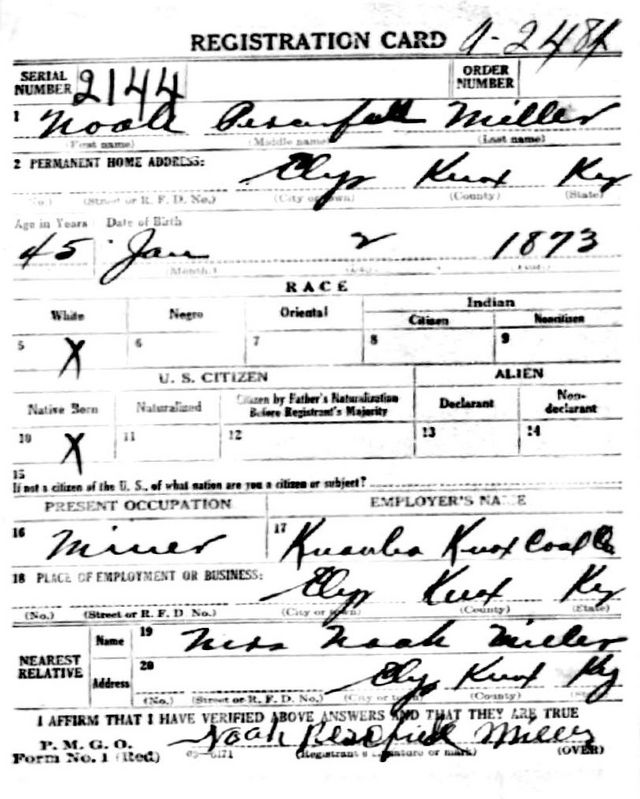 REGISTRATION CARD A-2484
SERIAL NUMBER 2144 ORDER NUMBER
1 Noah Miller
(First name) (Middle name) (Last name)
2 PERMANENT HOME ADDRESS: Elys Knox Ky
(No.) (Street or R. F. D. No.) (City or town) (County) (State)
Age in Years Date of Birth
45 Jan 2 1873
(Month.)
RACE
White Negro Oriental Indian
Citizen Noncitizen
5 X 6 7 8 9
U. S. CITIZEN ALIEN
Native Born Naturalized Citizen by Father's Naturalization Before Registrant's Majority Declarant Non-declarant
10 X 11 12 13 14
15
If not a citizen of the U. S., of what nation are you a citizen or subject?
PRESENT OCCUPATION EMPLOYER'S NAME
16 Miner 17 Knox Coal Co
18 PLACE OF EMPLOYMENT OR BUSINESS:
Elys Knox Ky
(No.) (Street or R. F. D. No.) (City or town) (County) (State)
NEAREST RELATIVE Name 19 Mrs Noah Miller
Address 20 Elys Knox Ky
(No.) (Street or R. F. D. No.) (City or town) (County)
I AFFIRM THAT I HAVE VERIFIED ABOVE ANSWERS AND THAT THEY ARE TRUE
P. M. G. O.
Form No. 1 (Red) Noah Miller
(Registrant's signature or mark) (OVER)